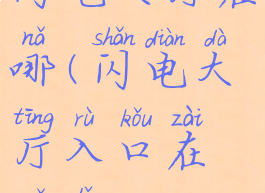 nǎ shǎn diàn dà
哪(闪电大
tīng rù kǒu zài
厅入口在